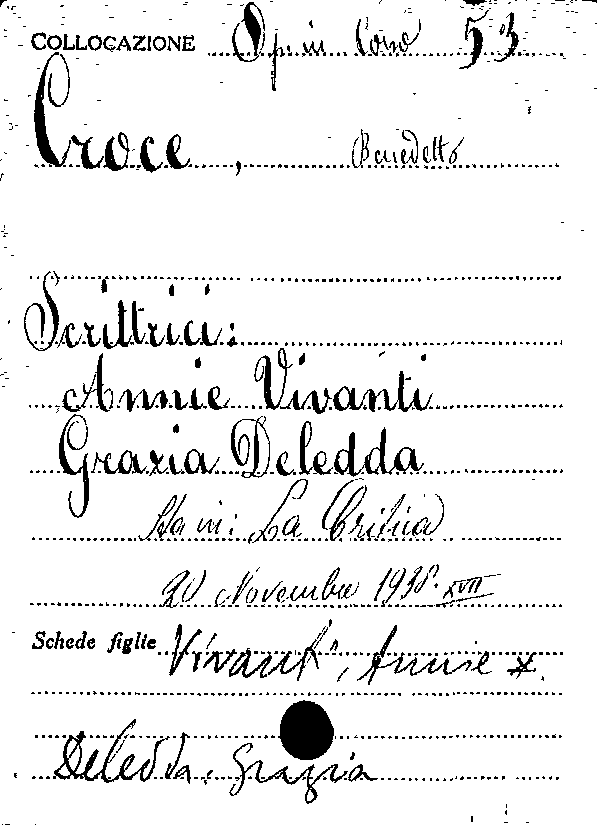 COLLOCAZIONE Op. in Corso 53
Croce, Benedetto
Scrittrici:
Annie Vivanti
Grazia Deledda
Sta in: La Critica
20 Novembre 1938. XVII
Schede figlie Vivanti, Annie *.
Deledda, Grazia